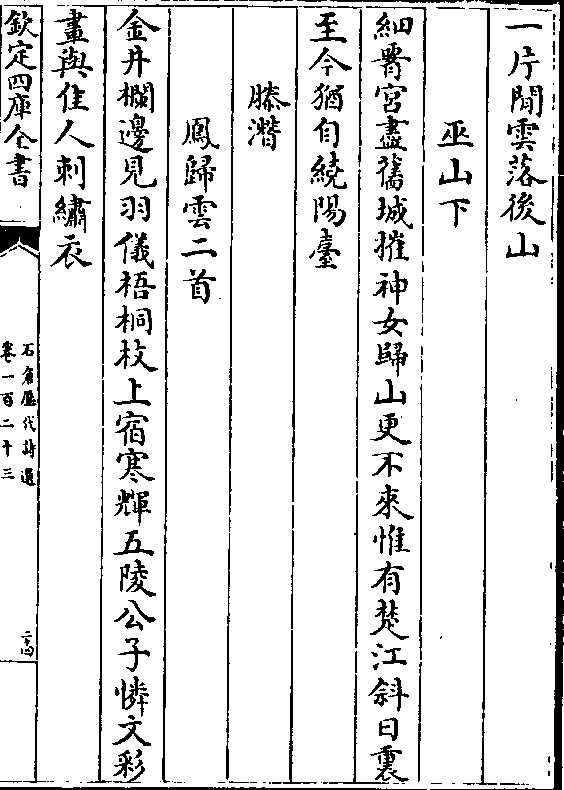 一片閒雲落後山
巫山下
細腰宮盡舊城摧神女歸山更不來惟有楚江斜日裏
至今猶自繞陽臺
滕潛
鳳歸雲二首
金井欄邊見羽儀梧桐枝上宿寒輝五陵公子憐文彩
畫與佳人刺繡衣
欽定四庫全書
石倉歷代詩選
卷一百二十三